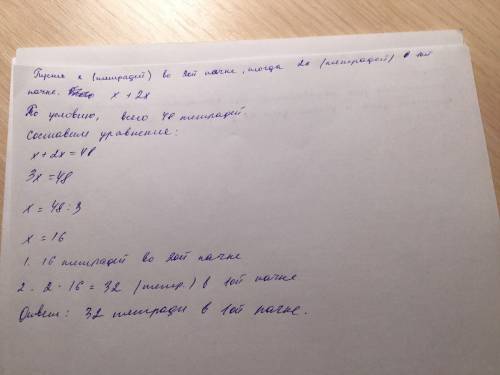 Пусть x (тетрадей) во 2ой пачке, тогда 2x (тетрадей) в 1ой
пачке. Всего x + 2x
По условию, всего 48 тетрадей.
Составим уравнение:
x + 2x = 48
3x = 48
x = 48 : 3
x = 16
1. 16 тетрадей во 2ой пачке
2. 2 · 16 = 32 (тетр.) в 1ой пачке
Ответ: 32 тетради в 1ой пачке.